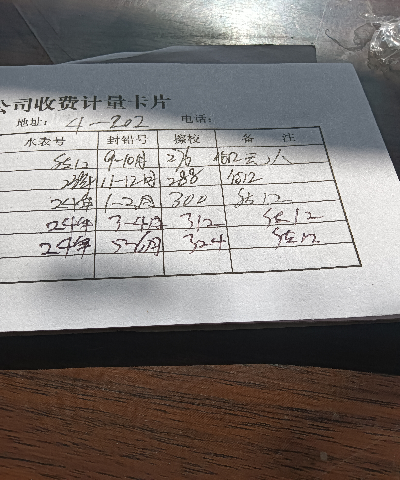 公司收费计量卡片
地址: 4-202 电话:
水表号 封铅号 擦校 备 注
估12 9-10月 276 估12 无人
11-12月 288 估12
24年 1-2月 300 估12
24年 3-4月 312 估12
24年 5-6月 324 估12